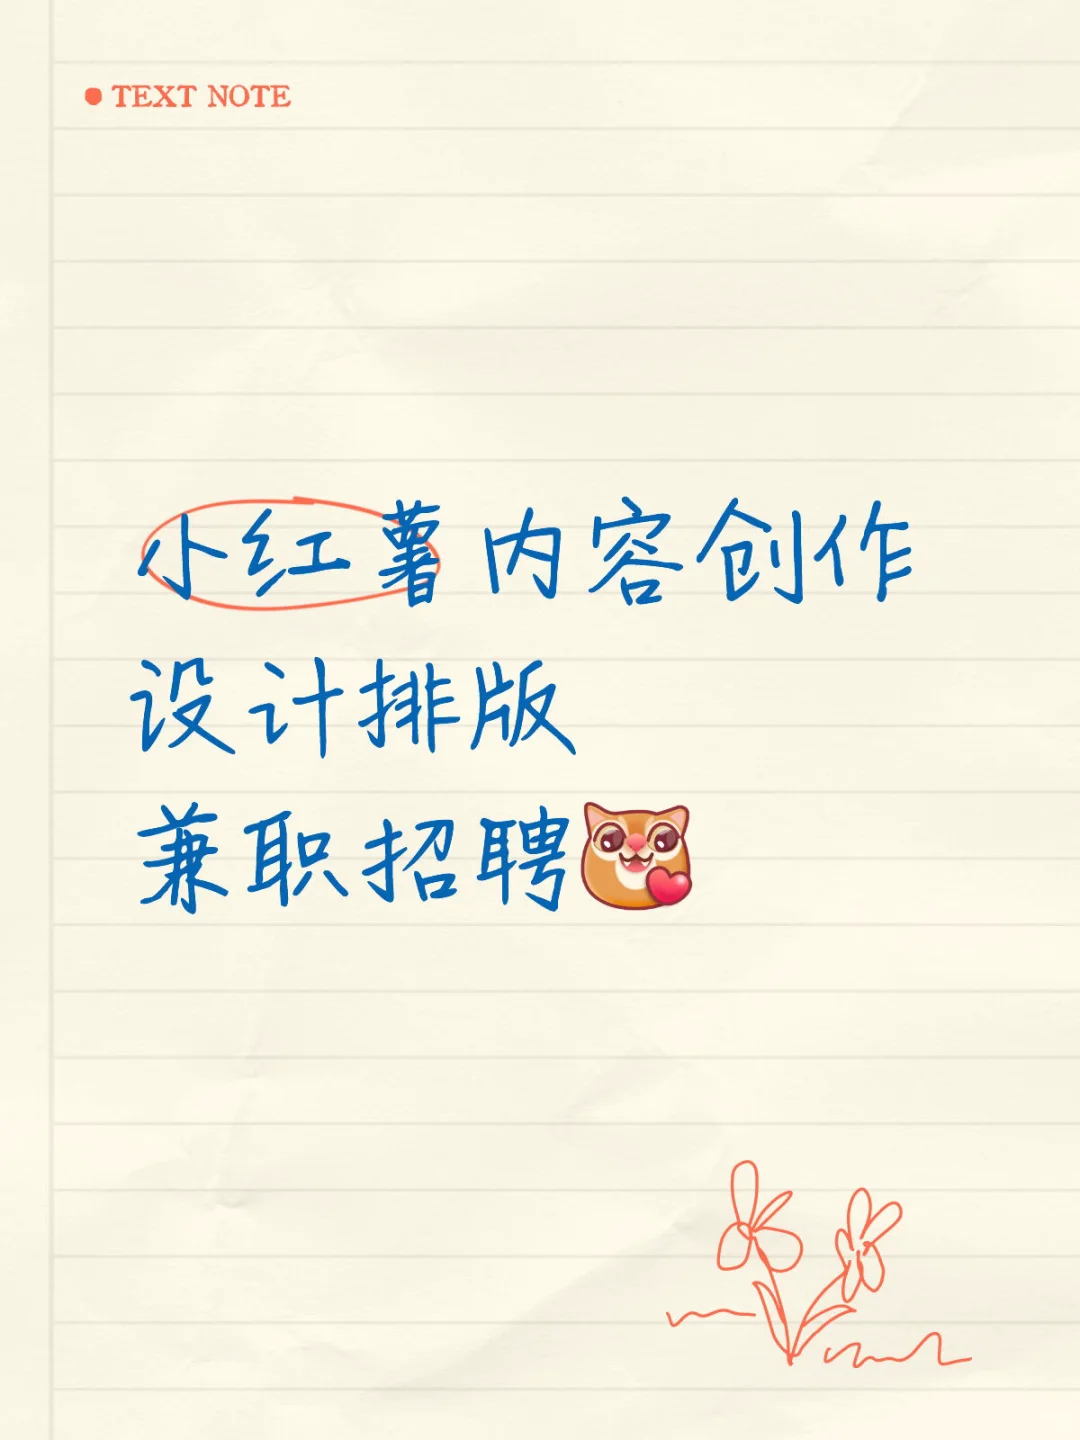 TEXT NOTE
小红薯内容创作
设计排版
兼职招聘